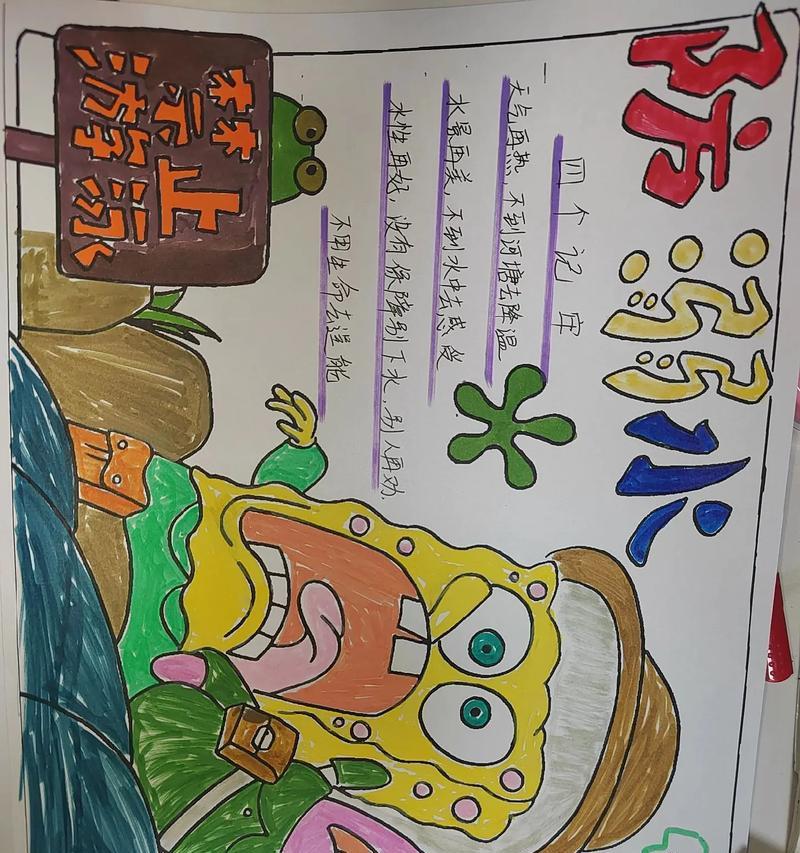 防溺水
四个记牢
天气再热，不到河塘去降温
水景再美，不到水中去感受
水性再好，没有保障别下水，别人再劝，
不用生命去逞能
禁止
游泳